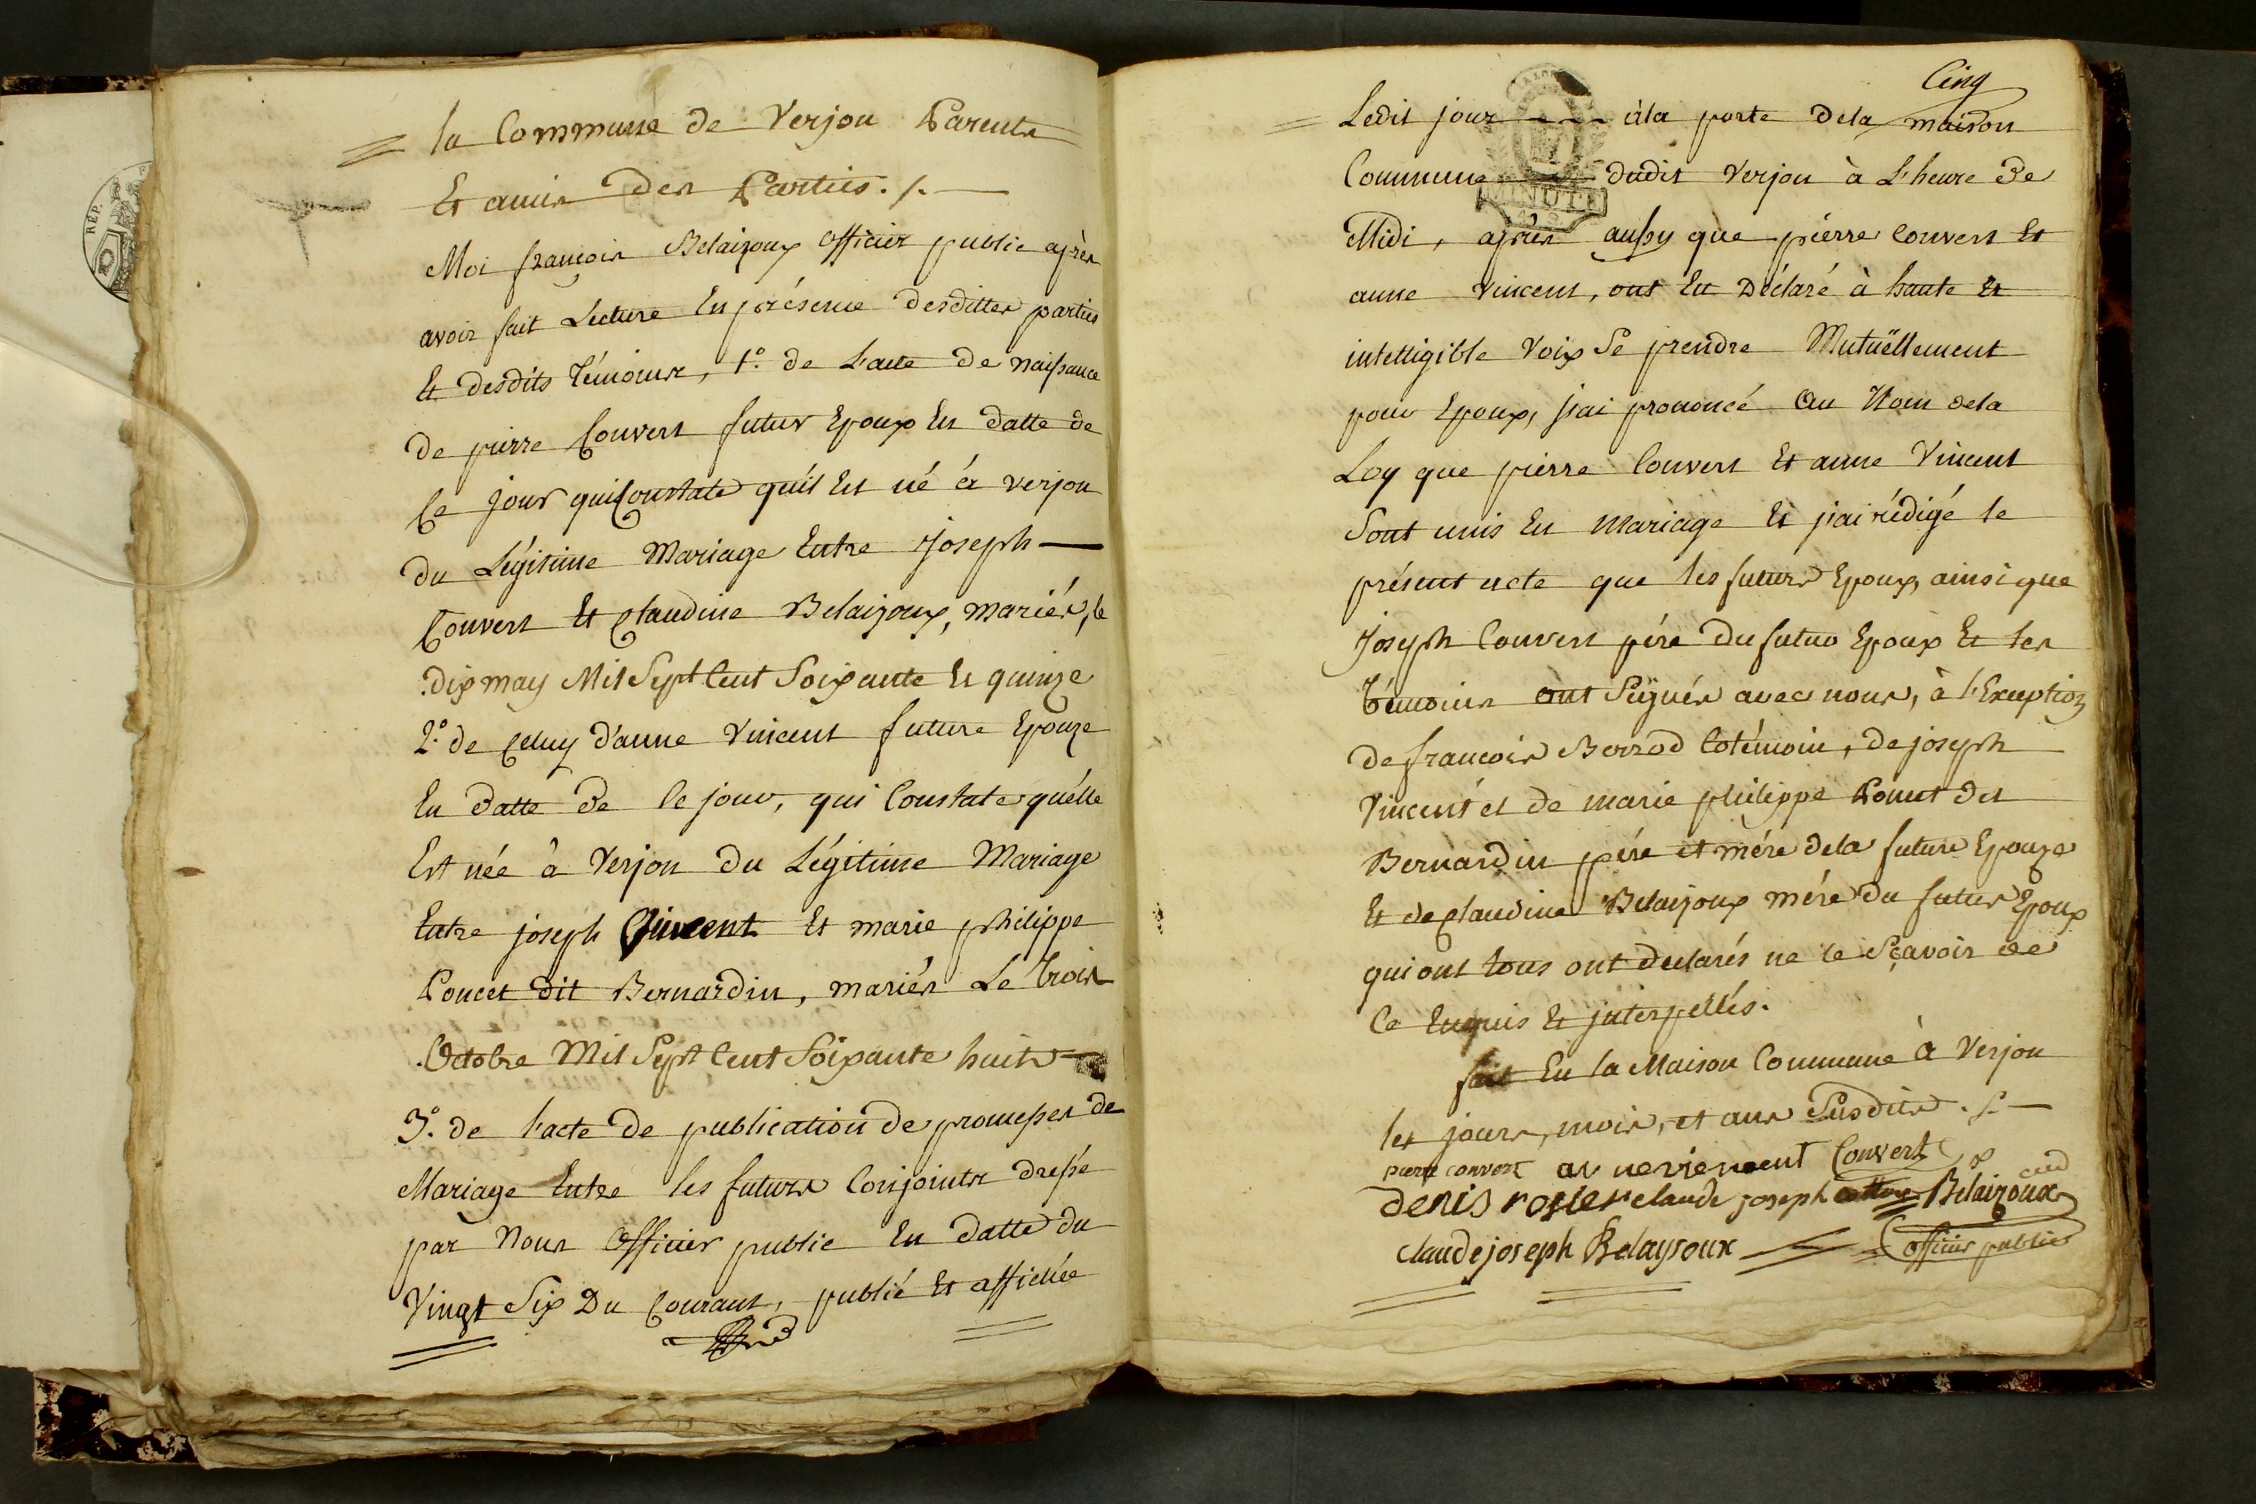 la Commune de Verjon Parents
Et amis des Parties ./.
Moi françois Belaizoux officier public après
avoir fait Lecture En présence desdittes parties
Et desdits témoins, 1º. de L'acte de naissance
de pierre Convert futur Epoux En datte de
Ce jour qui Constate qu'il Est né à verjon
du Légitime Mariage Entre joseph
Convert Et Claudine Belaizoux, mariés, le
dix may Mil Sept Cent Soixante Et quinze
2º. de Celuy d'anne Vincent future Epouze
En datte de Ce jour, qui Constate qu'élle
Est née à Verjon du Légitime Mariage
Entre joseph Vincent Et marie philippe
Poncet dit Bernardin, mariés Le trois
Octobre Mil Sept Cent Soixante huit
3º. de L'acte de publication de promesses de
Mariage Entre les futurs Conjoints dressé
par Nous Officier public En datte du
Vingt Six Du Courant, publié Et affichée
RÉP.
Cinq
Ledit jour à la porte de la maison
Commune dudit Verjon à L'heure de
Midi, après aussy que pierre Convert Et
anne Vincent, ont Eu Déclaré à haute Et
intelligible Voix Se prendre Mutuëllement
pour Epoux, j'ai prononcé Au Nom de la
Loy que pierre Convert Et anne Vincent
Sont unis En Mariage Et j'ai rédigé le
présent acte que les futurs Epoux, ainsi que
joseph Convert pére du futur Epoux Et les
témoins ont Signés avec nous, à l'Exception
de françois Berrod Cotémoin, de joseph
Vincent et de marie philippe Poncet dit
Bernardin pére et mére de la future Epouze
Et de Claudine Belaizoux mére du futur Epoux
qui ont tous ont declarés ne le Sçavoir de
Ce Enquis Et interpellés.
fait En la Maison Commune à Verjon
les jours, mois, et ans Susdits ./.
pierre convert an ne viencent Convert
denis rosier claude joseph Belaizoux
claude joseph Belaysoux officier public
MINUTE